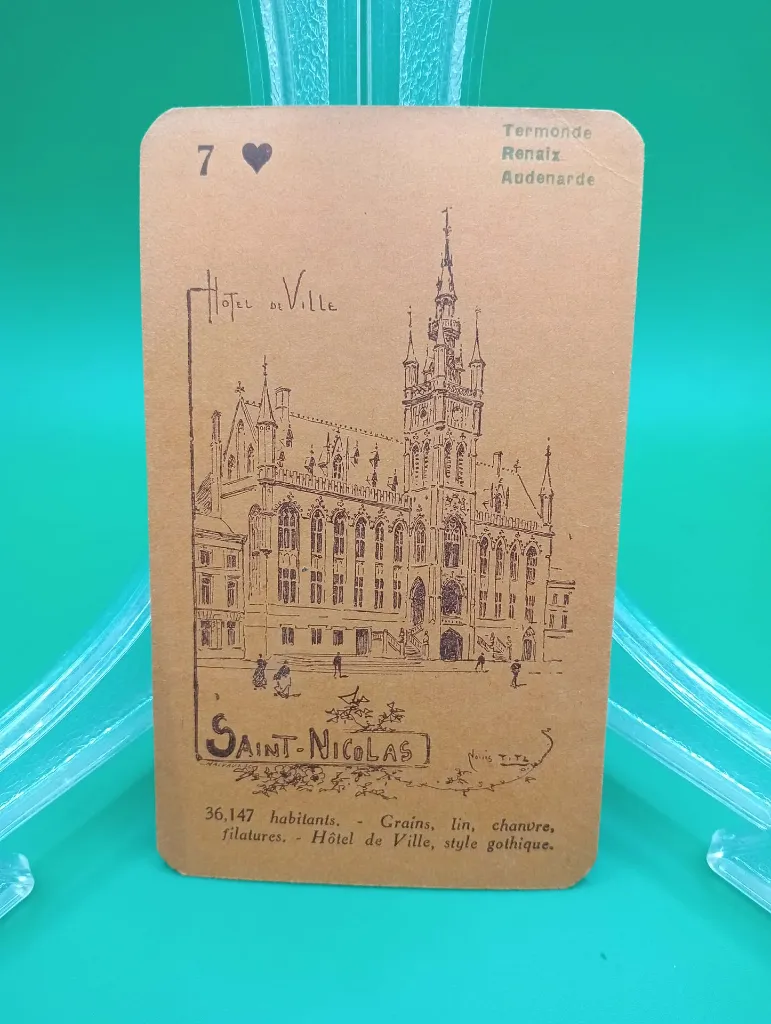 7 ♥
Termonde
Renaix
Audenarde
Hôtel de Ville
Saint-Nicolas
Louis Titz
36,147 habitants. - Grains, lin, chanvre,
filatures. - Hôtel de Ville, style gothique.